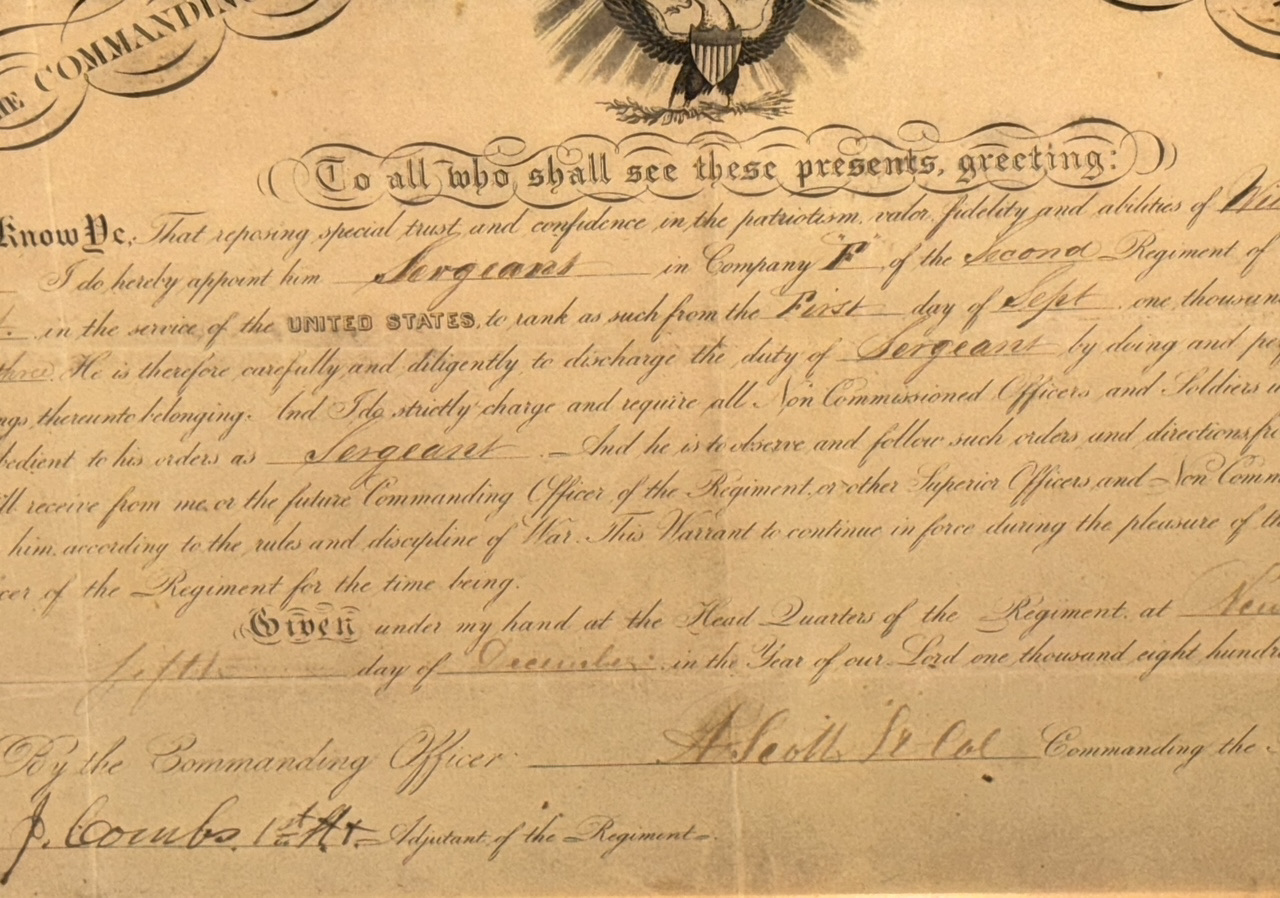 THE COMMANDING
To all who shall see these presents, greeting:
Know Ye, That reposing special trust and confidence in the patriotism, valor, fidelity and abilities of
I do hereby appoint him Sergeant in Company "F" of the Second Regiment of
in the service of the UNITED STATES, to rank as such from the First day of Sept one thousan
three. He is therefore carefully and diligently to discharge the duty of Sergeant by doing and pe
ngs thereunto belonging. And I do strictly charge and require all Non Commissioned Officers and Soldiers u
bedient to his orders as Sergeant. And he is to observe and follow such orders and directions fr
ll receive from me, or the future Commanding Officer of the Regiment, or other Superior Officers and Non Comm
him, according to the rules and discipline of War. This Warrant to continue in force during the pleasure of th
cer of the Regiment for the time being.
Given under my hand at the Head Quarters of the Regiment, at New
fifth day of December in the Year of our Lord one thousand eight hundr
By the Commanding Officer A. Scott Lt Col Commanding the
J. Combs 1st Lt. Adjutant of the Regiment.